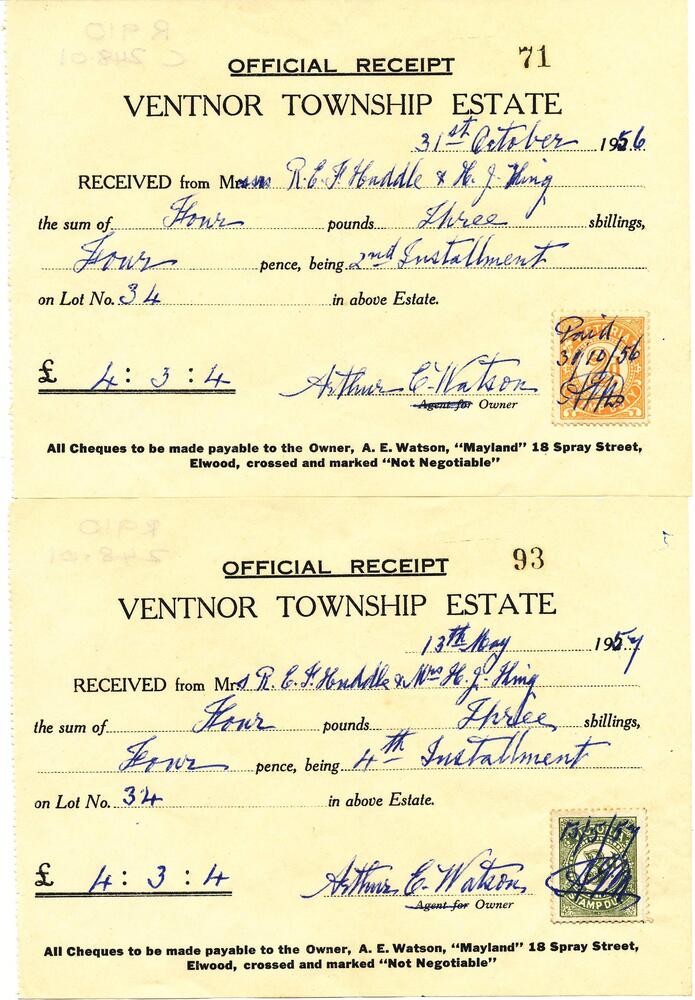 OFFICIAL RECEIPT 71
VENTNOR TOWNSHIP ESTATE
31st October 1956
RECEIVED from Messrs R. E. F. Huddle & H. J. King
the sum of Four pounds Three shillings,
Four pence, being 2nd Installment
on Lot No. 34 in above Estate.
£ 4 : 3 : 4 Arthur E. Watson
Agent for Owner
Paid
31/10/56
All Cheques to be made payable to the Owner, A. E. Watson, "Mayland" 18 Spray Street,
Elwood, crossed and marked "Not Negotiable"
R 910
248.01
OFFICIAL RECEIPT 93
VENTNOR TOWNSHIP ESTATE
13th May 1957
RECEIVED from Mrs R. E. F. Huddle & Mrs H. J. King
the sum of Four pounds Three shillings,
Four pence, being 4th Installment
on Lot No. 34 in above Estate.
£ 4 : 3 : 4 Arthur E. Watson
Agent for Owner
13/5/57
STAMP DU
All Cheques to be made payable to the Owner, A. E. Watson, "Mayland" 18 Spray Street,
Elwood, crossed and marked "Not Negotiable"